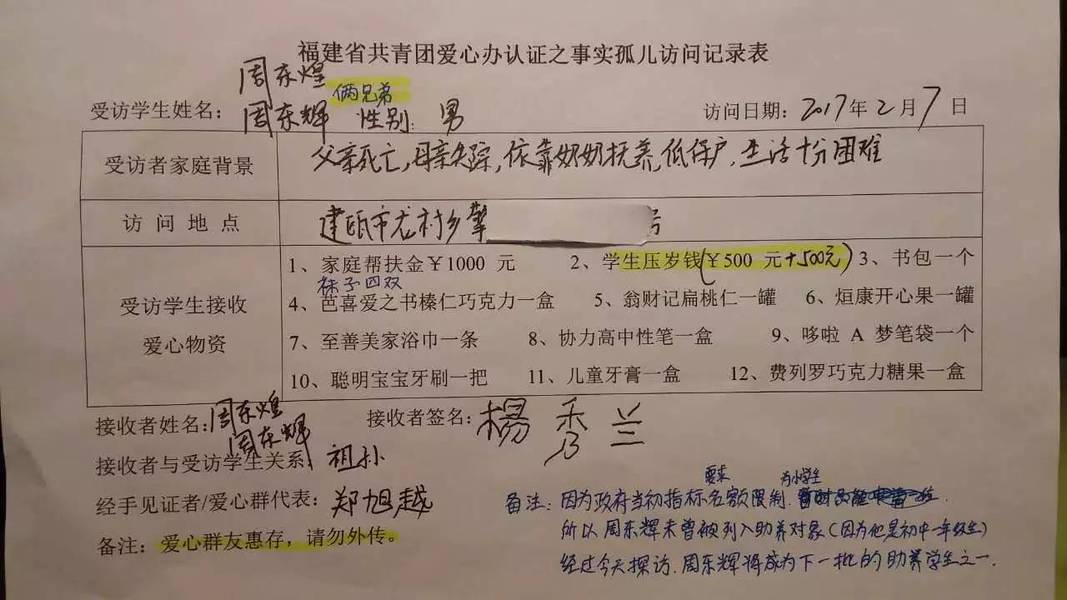 福建省共青团爱心办认证之事实孤儿访问记录表
周东煌
俩兄弟
受访学生姓名：周东辉 性别：男 访问日期：2017年2月7日
受访者家庭背景 父亲死亡，母亲失踪，依靠奶奶抚养，低保户，生活十分困难
访问地点 建瓯市龙村乡擎 号
受访学生接收
爱心物资
1、家庭帮扶金￥1000 元 2、学生压岁钱（￥500 元+500元） 3、书包一个
袜子四双
4、芭喜爱之书榛仁巧克力一盒 5、翁财记扁桃仁一罐 6、烜康开心果一罐
7、至善美家浴巾一条 8、协力高中性笔一盒 9、哆啦 A 梦笔袋一个
10、聪明宝宝牙刷一把 11、儿童牙膏一盒 12、费列罗巧克力糖果一盒
接收者姓名：周东煌
周东辉
接收者签名：楊秀兰
接收者与受访学生关系：祖孙
经手见证者/爱心群代表：郑旭越
备注：爱心群友惠存，请勿外传。
要求 为小学生
备注：因为政府当初指标名额限制
所以周东辉未曾被列入助养对象（因为他是初中一年级生）
经过今天探访，周东辉将成为下一批的助养学生之一．